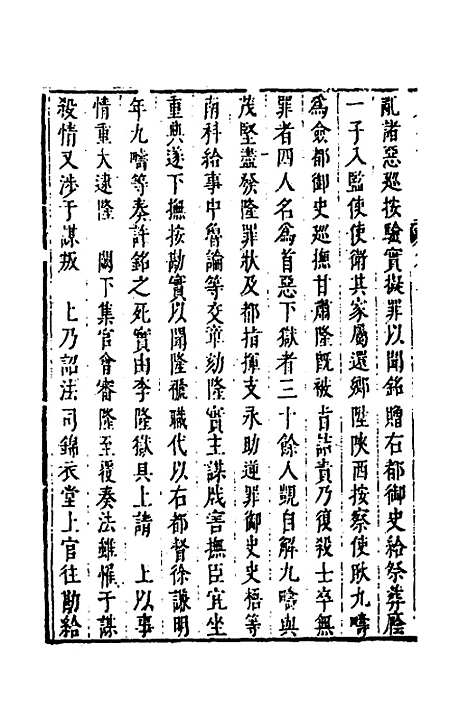 亂諸惡巡按驗實擬罪以聞銘贈右都御史給祭葬廕
一子入監使使衛其家屬還鄉陞陝西按察使耿九疇
為僉都御史巡撫甘肅隆既被旨詰責乃復殺士卒無
罪者四人名為首惡下獄者三十餘人覬自解九疇與
茂堅盡發隆罪狀及都指揮支永助逆罪御史史梧等
南科給事中魯論等交章劾隆實主謀戕害撫臣宜坐
重典遂下撫按勘實以聞隆褫職代以右都督徐謙明
年九疇等奏許銘之死實由李隆獄具上請　上以事
情重大逮隆　闕下集官會審隆至覆奏法雖惟于謀
殺情又涉于謀叛　上乃詔法司錦衣堂上官往勘給